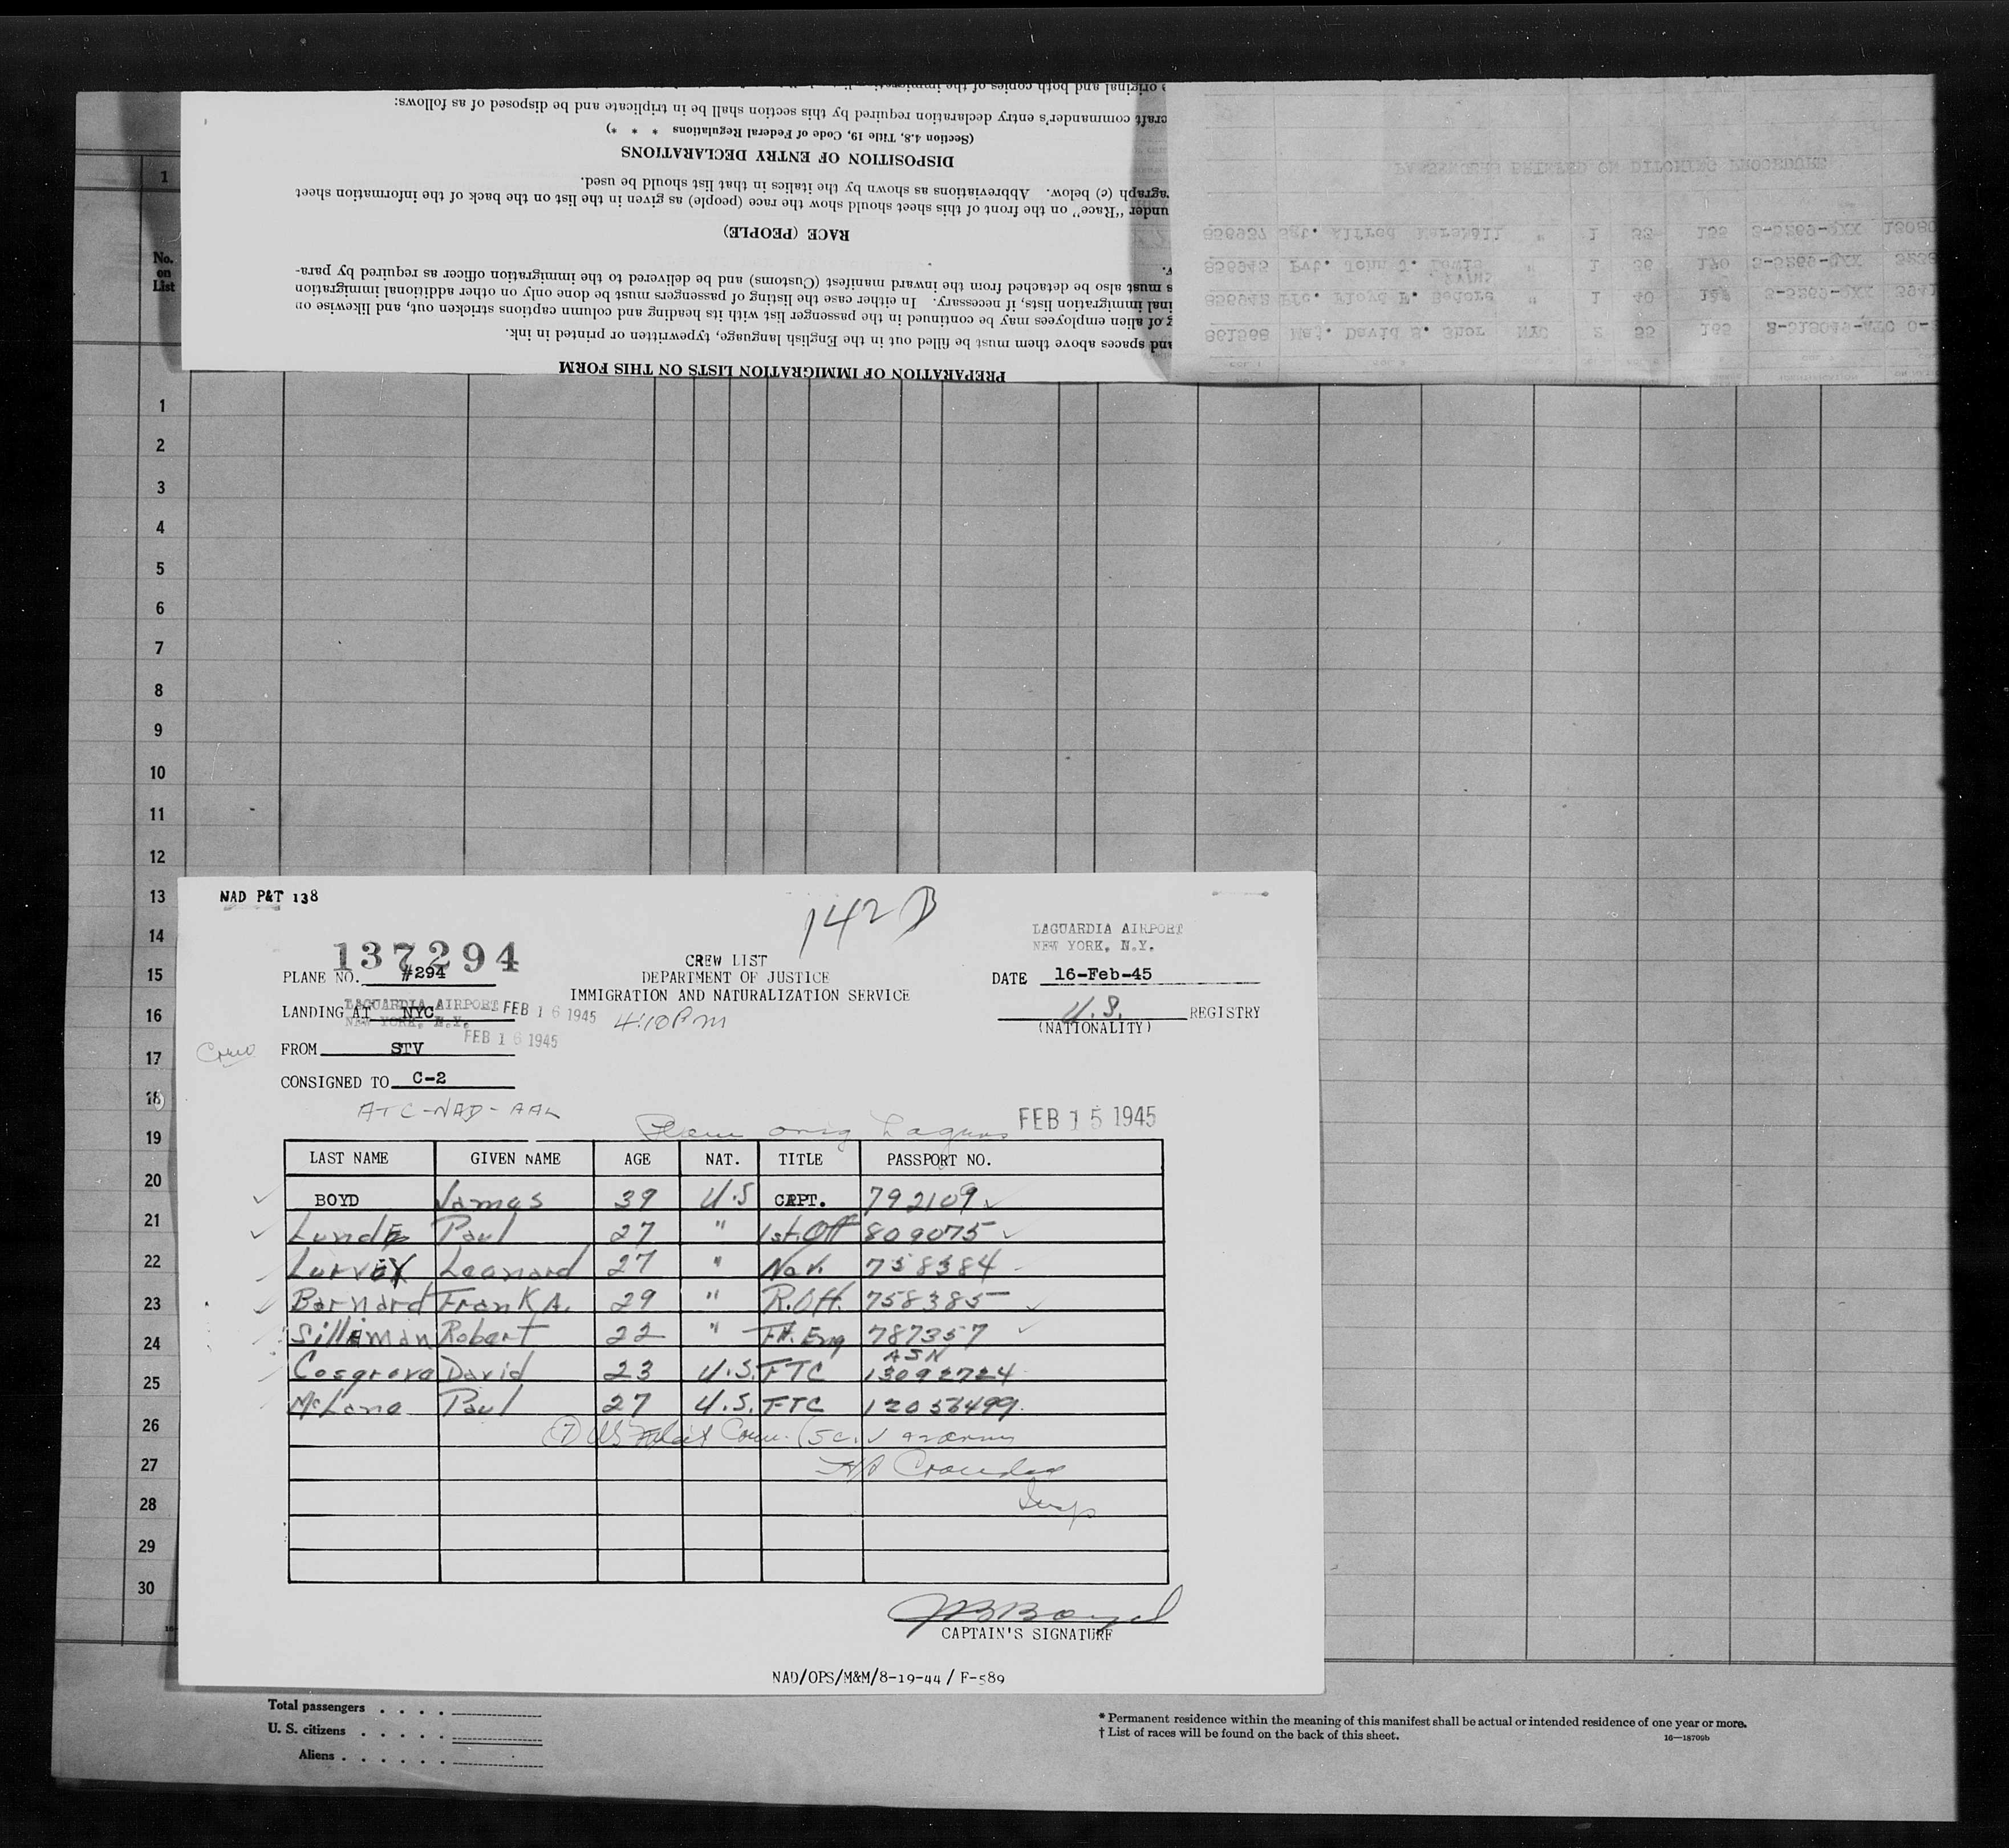 original and both copies of the
craft commander's entry declaration required by this section shall be in triplicate and be disposed of as follows:
(Section 4.8, Title 19, Code of Federal Regulations * * *)
DISPOSITION OF ENTRY DECLARATIONS
agraph (c) below. Abbreviations as shown by the italics in that list should be used.
under "Race" on the front of this sheet should show the race (people) as given in the list on the back of the information sheet
RACE (PEOPLE)
s must also be detached from the inward manifest (Customs) and be delivered to the immigration officer as required by para-
inal immigration lists, if necessary. In either case the listing of passengers must be done only on other additional immigration
g of alien employees may be continued in the passenger list with its heading and column captions stricken out, and likewise on
and spaces above them must be filled out in the English language, typewritten or printed in ink.
PREPARATION OF IMMIGRATION LISTS ON THIS FORM
PASSENGERS BRIEFED ON DITCHING PROCEDURE
Sgt. Alfred Marshall " 1
Pvt. John J. Lewis " 1 36 170
Pfc. Floyd F. Bedore " 1 40
Maj. David S. Shor NYC 2 35 165
1
No.
on
List
1
2
3
4
5
6
7
8
9
10
11
12
13
14
15
16
17
18
19
20
21
22
23
24
25
26
27
28
29
30
NAD P&T 138
142 B
LAGUARDIA AIRPORT
NEW YORK, N.Y.
137294
CREW LIST
PLANE NO. #294
DEPARTMENT OF JUSTICE
DATE 16-Feb-45
IMMIGRATION AND NATURALIZATION SERVICE
LAGUARDIA AIRPORT
NEW YORK, N.Y.
LANDING AT NYC FEB 16 1945
4:10 PM
U.S. REGISTRY
(NATIONALITY)
FEB 16 1945
Crew
FROM STV
CONSIGNED TO C-2
ATC-NAD-AAL
FEB 15 1945
LAST NAME GIVEN NAME AGE NAT. TITLE PASSPORT NO.
BOYD James 39 U.S CAPT. 792109
Lunde Paul 27 " 1st.Off 809075
Lurvey Leonard 27 " Nav. 758384
Barnard Frank A. 29 " R.Off. 758385
Silliman Robert 22 " Flt. Eng 787357
ASN
Cosgrove David 23 U.S. FTC 13092724
McLane Paul 27 U.S. FTC 12056499
Insp
JBBoyd
CAPTAIN'S SIGNATURE
NAD/OPS/M&M/8-19-44 / F-589
Total passengers . . . .
U. S. citizens . . . . .
Aliens . . . . . .
* Permanent residence within the meaning of this manifest shall be actual or intended residence of one year or more.
† List of races will be found on the back of this sheet.
16—18709b